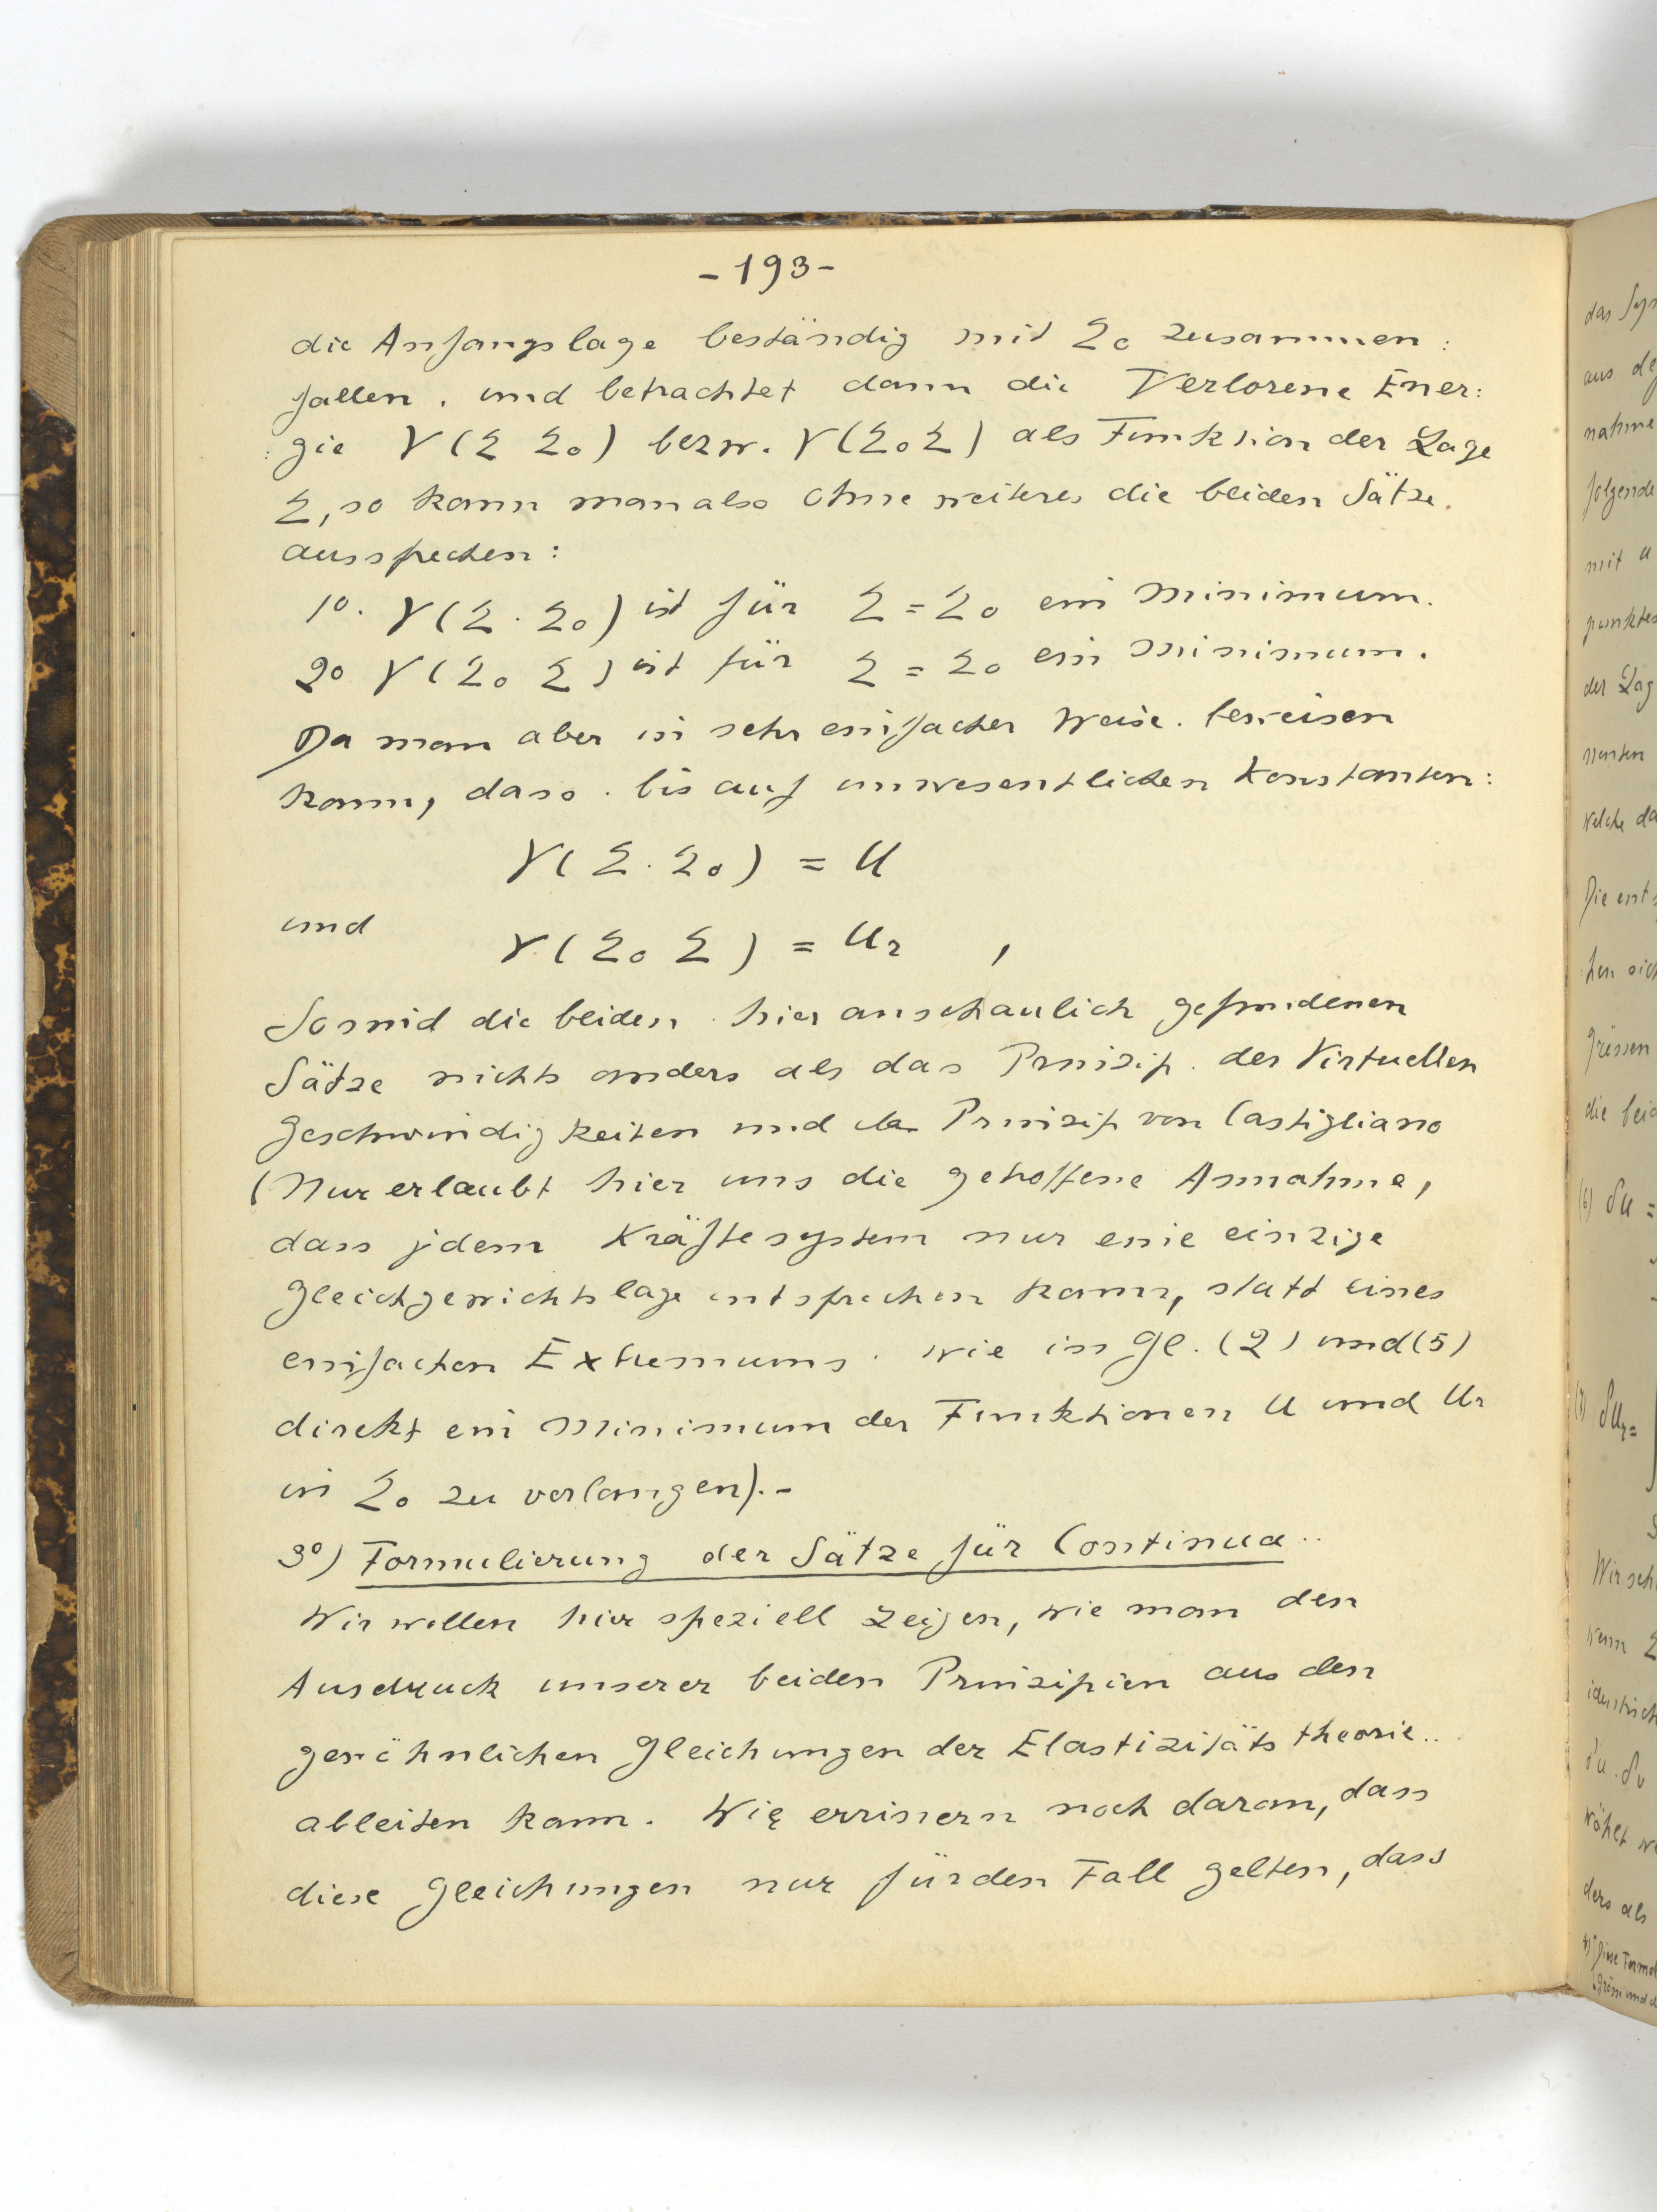 - 193 -
die Anfangslage beständig mit Σ₀ zusammen:
fallen. und betrachtet dann die Verlorene Ener:
:gie V(Σ Σ₀) bezw. V(Σ₀Σ) als Funktion der Lage
Σ, so kann man also ohne weiteres die beiden Sätze.
aussprechen:
1⁰. V(Σ·Σ₀) ist für Σ = Σ₀ ein Minimum.
2⁰ V(Σ₀ Σ) ist für Σ = Σ₀ ein Minimum.
Da man aber in sehr einfacher Weise. beweisen
kann, dass. bis auf unwesentlichen Konstanten:
V(Σ·Σ₀) = U
und V(Σ₀ Σ) = U₂ ,
So sind die beiden hier anschaulich gefundenen
Sätze nichts anders als das Prinzip. der Virtuellen
Geschwindigkeiten und das Prinzip von Castigliano
(Nur erlaubt hier uns die getroffene Annahme,
dass jdem Kräftesystem nur eine einzige
Gleichgewichtslage entsprechen kann, statt eines
einfachen Extremums. wie in Gl. (2) und (5)
direkt ein Minimum der Funktionen U und U₂
in Σ₀ zu verlangen).-
3⁰) Formulierung der Sätze für Continua..
Wir wollen hier speziell zeigen, wie man den
Ausdruck unserer beiden Prinzipien aus den
gewöhnlichen Gleichungen der Elastizitäts theorie..
ableiten kann. Wir errinern noch daran, dass
diese Gleichungen nur für den Fall gelten, dass
das Sys
aus de
nahme
folgende
mit u
punktes
der Lag
nenten
welche da
Die ents
hen sich
Grössen
die beid
(6) δU =
(7) δU₂ =
Wir sch
wenn Σ
identisch
δu. δv
wählt we
ders als
*) Diese Formel
Green und d